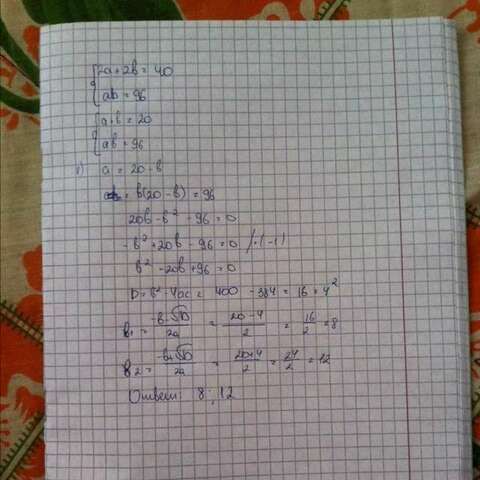 { 2a + 2b = 40
{ ab = 96
{ a + b = 20
{ ab = 96
1) a = 20 - b
b(20 - b) = 96
20b - b² - 96 = 0
-b² + 20b - 96 = 0 /·(-1)
b² - 20b + 96 = 0
D = b² - 4ac = 400 - 384 = 16 = 4²
b₁ = (-b - √D)/2a = (20 - 4)/2 = 16/2 = 8
b₂ = (-b + √D)/2a = (20 + 4)/2 = 24/2 = 12
Ответ: 8 ; 12